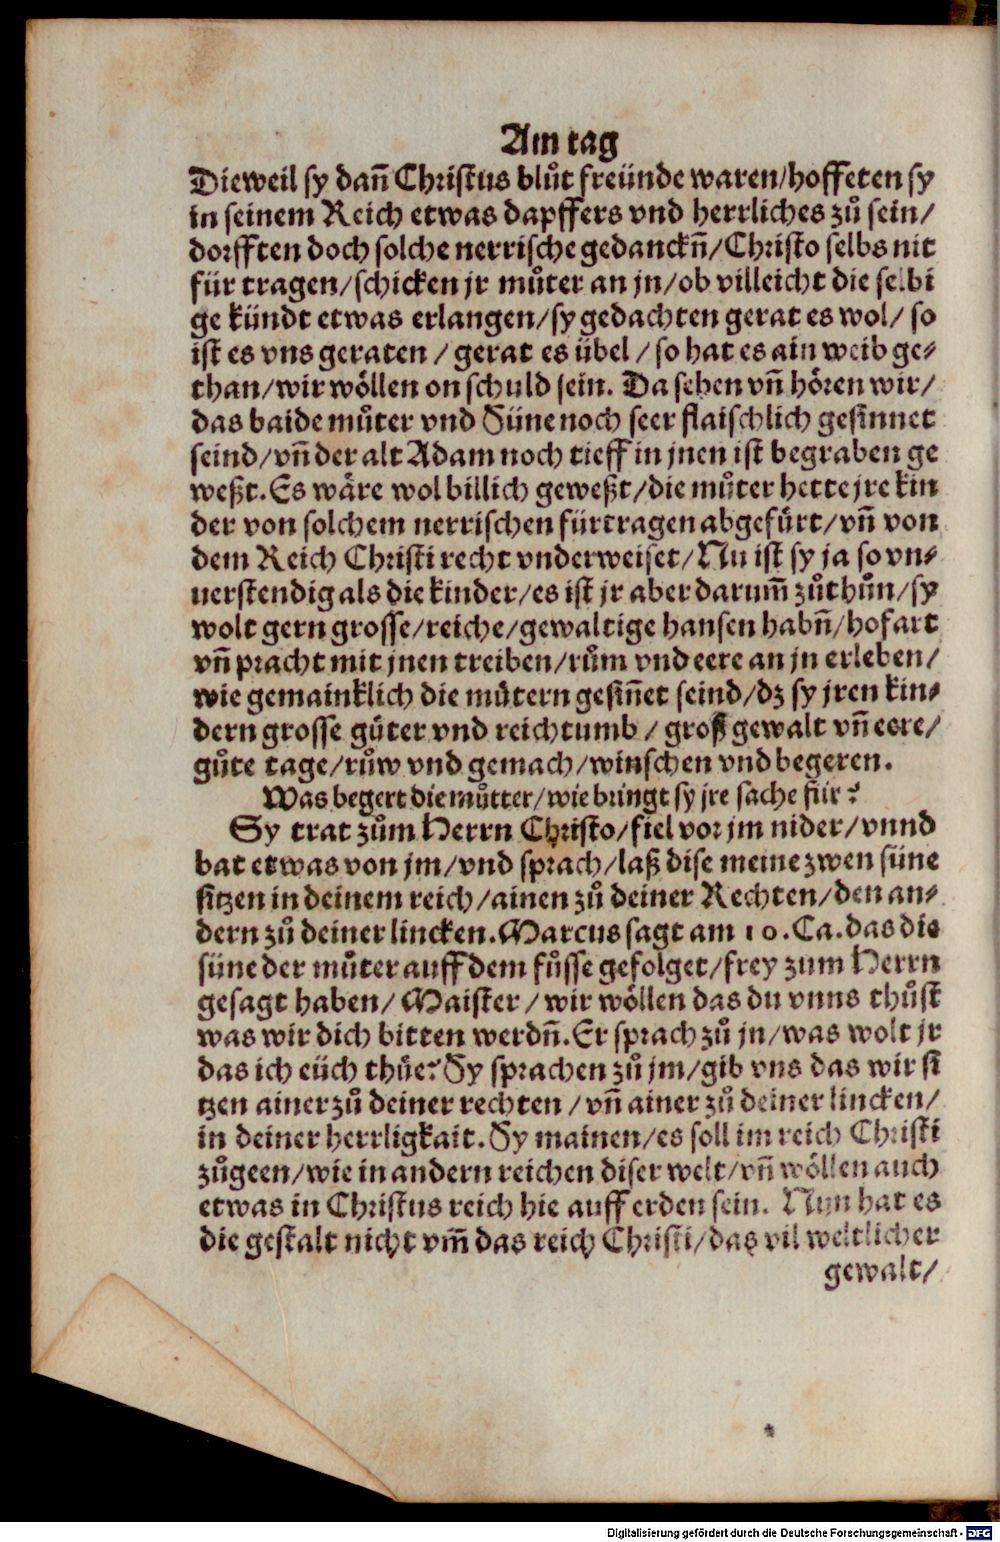 Am tag
Dieweil sy dañ Christus blůt freünde waren/hoffeten sy
in seinem Reich etwas dapffers vnd herrliches zů sein/
dorfften doch solche nerrische gedanckñ/Christo selbs nit
für tragen/schicken jr můter an jn/ob villeicht die selbi
ge kündt etwas erlangen/sy gedachten gerat es wol/ so
ist es vns geraten / gerat es übel / so hat es ain weib ge⸗
than/wir wöllen on schuld sein. Da sehen vñ hören wir/
das baide můter vnd Süne noch seer flaischlich gesinnet
seind/vñ der alt Adam noch tieff in jnen ist begraben ge
weßt. Es wäre wol billich geweßt/die můter hette jre kin
der von solchem nerrischen fürtragen abgefürt/vñ von
dem Reich Christi recht vnderweiset/Nu ist sy ja so vn⸗
uerstendig als die kinder/es ist jr aber darum̃ zůthůn/sy
wolt gern grosse/reiche/gewaltige hansen habñ/hofart
vñ pracht mit jnen treiben/rům vnd eere an jn erleben/
wie gemainklich die mütern gesiñet seind/dz sy jren kin⸗
dern grosse güter vnd reichtumb / groß gewalt vñ eere/
gůte tage/růw vnd gemach/winschen vnd begeren.
Was begert die můtter/wie bringt sy jre sache für?
Sy trat zům Herrn Christo/fiel vor jm nider/vnnd
bat etwas von jm/vnd sprach/laß dise meine zwen süne
sitzen in deinem reich/ainen zů deiner Rechten/den an⸗
dern zů deiner lincken. Marcus sagt am 10. Ca. das die
süne der můter auff dem fůsse gefolget/frey zum Herrn
gesagt haben/ Maister / wir wöllen das du vnns thůst
was wir dich bitten werdñ. Er sprach zů jn/was wolt jr
das ich eüch thüe? Sy sprachen zů jm/gib vns das wir si
tzen ainer zů deiner rechten / vñ ainer zů deiner lincken/
in deiner herrligkait. Sy mainen/es soll im reich Christi
zůgeen/wie in andern reichen diser welt/vñ wöllen auch
etwas in Christus reich hie auff erden sein. Nun hat es
die gestalt nicht vm̃ das reich Christi/das vil weltlicher
gewalt/
Digitalisierung gefördert durch die Deutsche Forschungsgemeinschaft - DFG